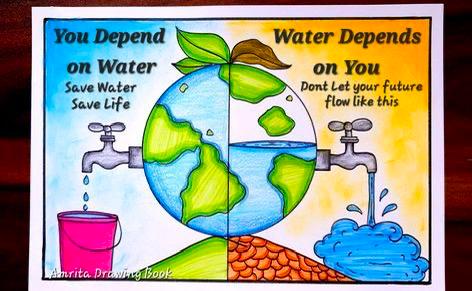 You Depend
on Water
Save Water
Save Life
Water Depends
on You
Dont Let your future
flow like this
Amrita Drawing Book